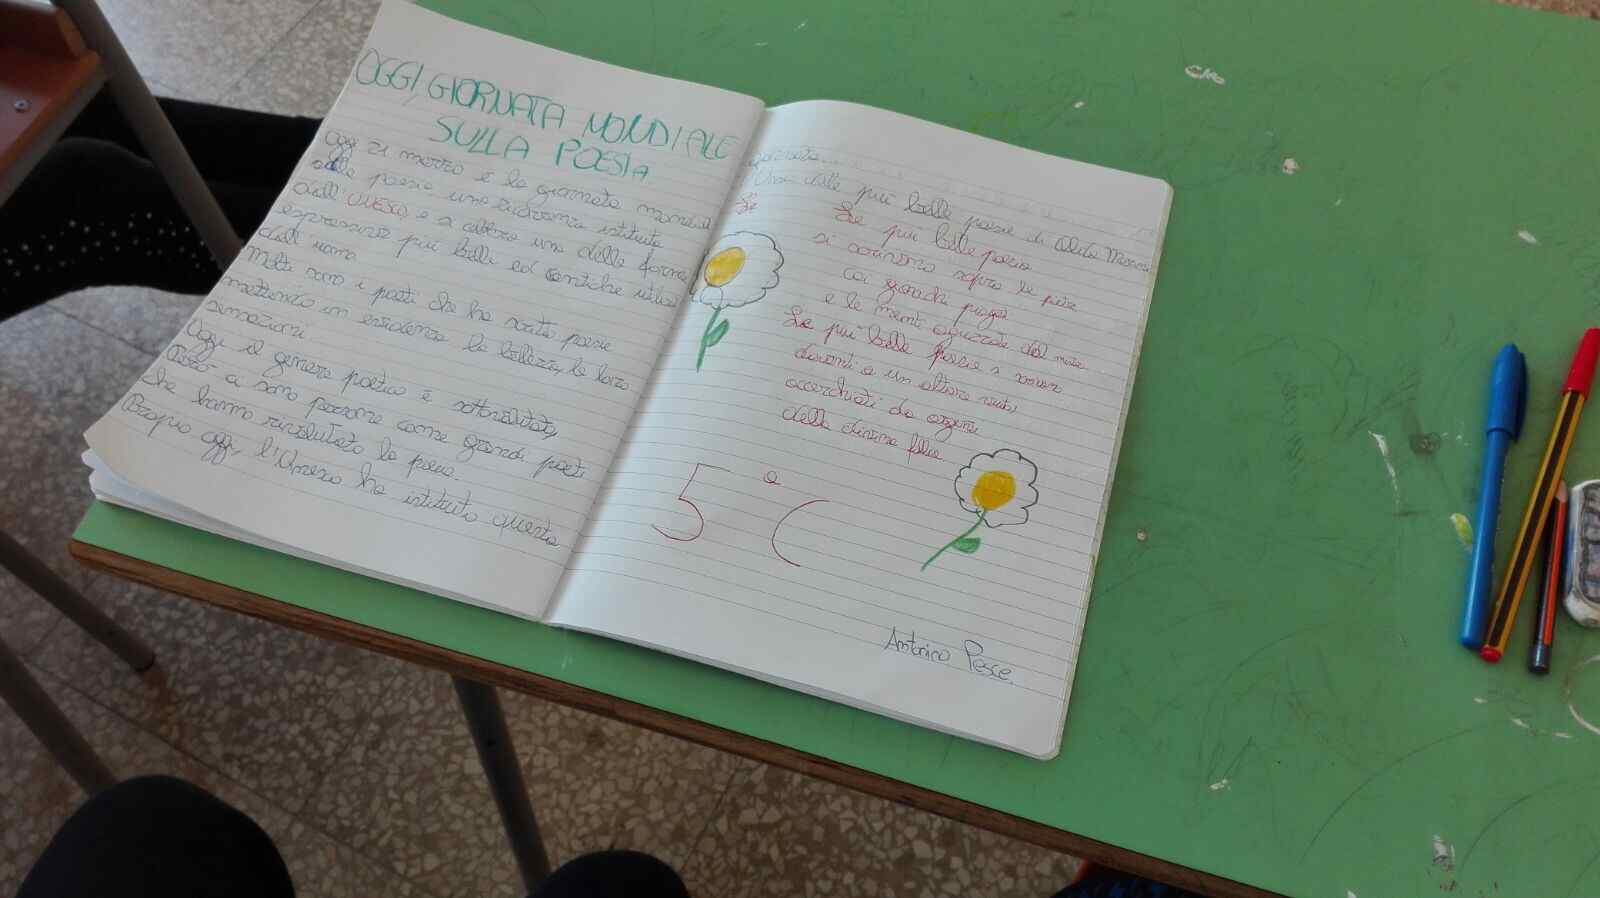 OGGI, GIORNATA MONDIALE
SULLA POESIA
Oggi 21 marzo è la giornata mondiale
sulla poesia una ricorrenza istituita
dall'UNESCO, e si celebra una delle forme
espressive più belle ed antiche
dell'uomo
Molti sono i poeti che ha scritto poesie
mettendo in evidenza la bellezza, le loro
sensazioni
Oggi il genere poetico è sottovalutato,
Però ci sono persone come grandi poeti
che hanno rivalutato la poesia.
Proprio oggi, l'Unesco ha istituito questa
giornata.
Una delle più belle poesie di Alda Merini
Le
Le più belle poesie
si scrivono sopra le pietre
coi ginocchi piagati
e le menti aguzzate dal mistero
Le più belle poesie si scrivono
davanti a un altare vuoto
accerchiati da argenti
della divina follia
5ª C
Antonino Pesce.